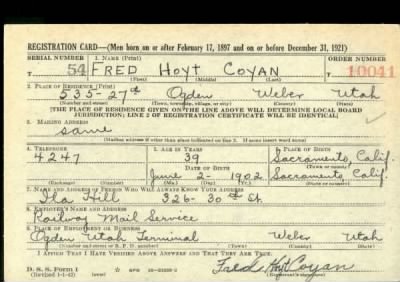 REGISTRATION CARD—(Men born on or after February 17, 1897 and on or before December 31, 1921)
SERIAL NUMBER 1. NAME (Print) ORDER NUMBER
T 54 FRED HOYT COYAN T 10041
(First) (Middle) (Last)
2. PLACE OF RESIDENCE (Print)
535-27th Ogden Weber Utah
(Number and street) (Town, township, village, or city) (County) (State)
[THE PLACE OF RESIDENCE GIVEN ON THE LINE ABOVE WILL DETERMINE LOCAL BOARD
JURISDICTION; LINE 2 OF REGISTRATION CERTIFICATE WILL BE IDENTICAL]
3. MAILING ADDRESS
Same
[Mailing address if other than place indicated on line 2. If same insert word same]
4. TELEPHONE 5. AGE IN YEARS 6. PLACE OF BIRTH
4247 39 Sacramento, Calif.
DATE OF BIRTH
June 2- 1902 Sacramento, Calif.
(Exchange) (Number) (Mo.) (Day) (Yr.) (State or country)
7. NAME AND ADDRESS OF PERSON WHO WILL ALWAYS KNOW YOUR ADDRESS
Ida Hill 326-30th St.
8. EMPLOYER'S NAME AND ADDRESS
Railway Mail Service
9. PLACE OF EMPLOYMENT OR BUSINESS
Ogden Utah Terminal Weber Utah
(Number and street or R. F. D. number) (Town) (County) (State)
I AFFIRM THAT I HAVE VERIFIED ABOVE ANSWERS AND THAT THEY ARE TRUE.
Fred Hoyt Coyan
D. S. S. Form 1
(Revised 1-1-42) (over) (Registrant's signature)